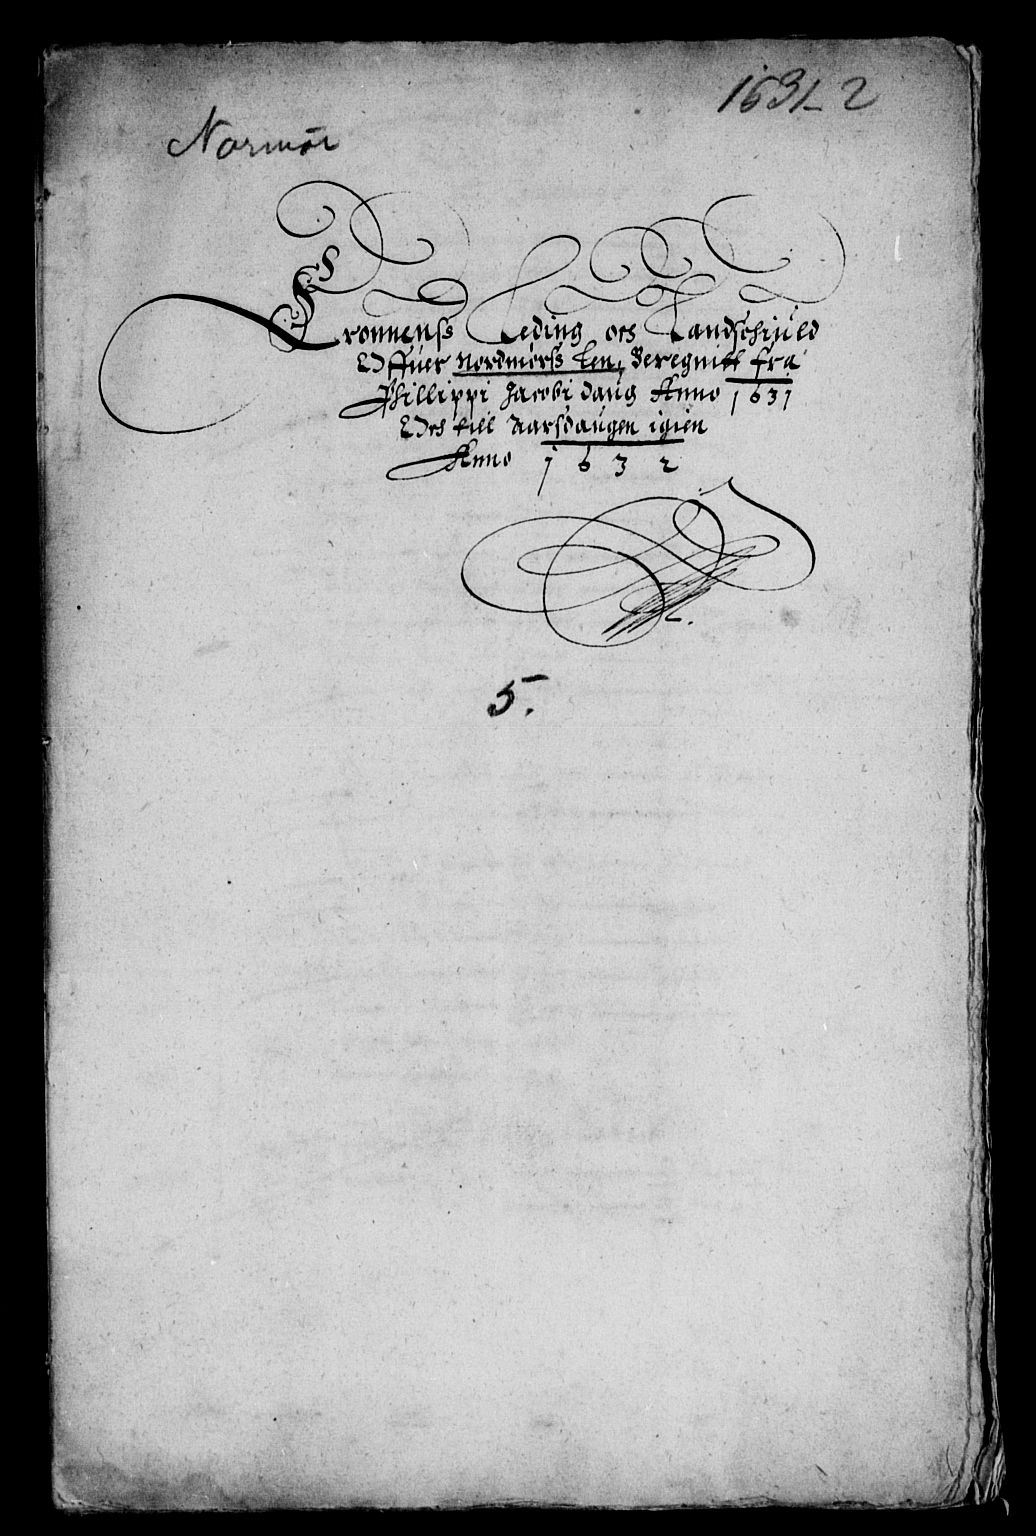 1631_2
Normör
Cronnens Leding och Landschiuld
Offuer Nordmørs Len, Beregnitt fra
Phillippi Jacobi daug Anno 1631
Och till Aarsdaugen igien
Anno 1632
5.